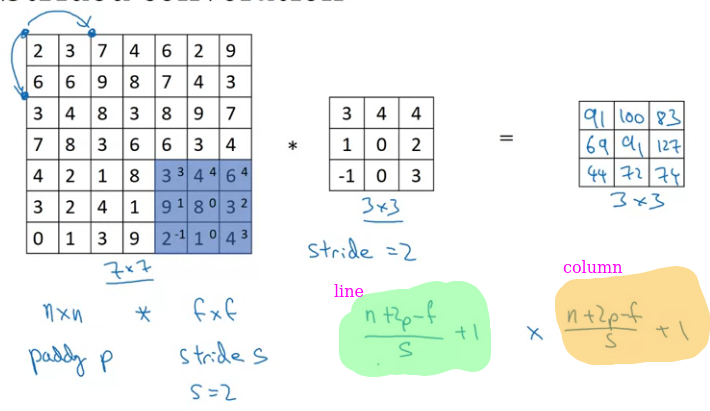 Strided convolution
2 3 7 4 6 2 9
6 6 9 8 7 4 3
3 4 8 3 8 9 7
7 8 3 6 6 3 4
4 2 1 8 3 3 4 4 6 4
3 2 4 1 9 1 8 0 3 2
0 1 3 9 2 -1 1 0 4 3
7×7
*
3 4 4
1 0 2
-1 0 3
3×3
stride = 2
=
91 100 83
69 91 127
44 72 74
3×3
n×n * f×f
padding p stride s
s=2
line
n+2p-f
s
+1
×
column
n+2p-f
s
+1